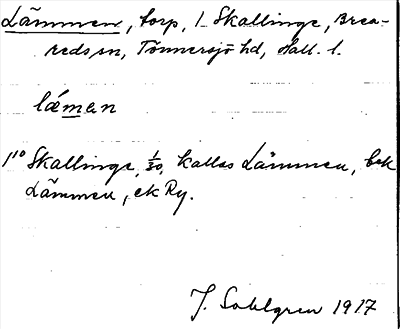 Lämmen, torp, 1_ Skallinge, Brea-
reds sn, Tönnersjö hd, Hall. l.
lǽmən
1¹⁰ Skallinge, 1/20, kallas Lämmen, bek
Lämmen, ek Ry.
J. Sahlgren 1917